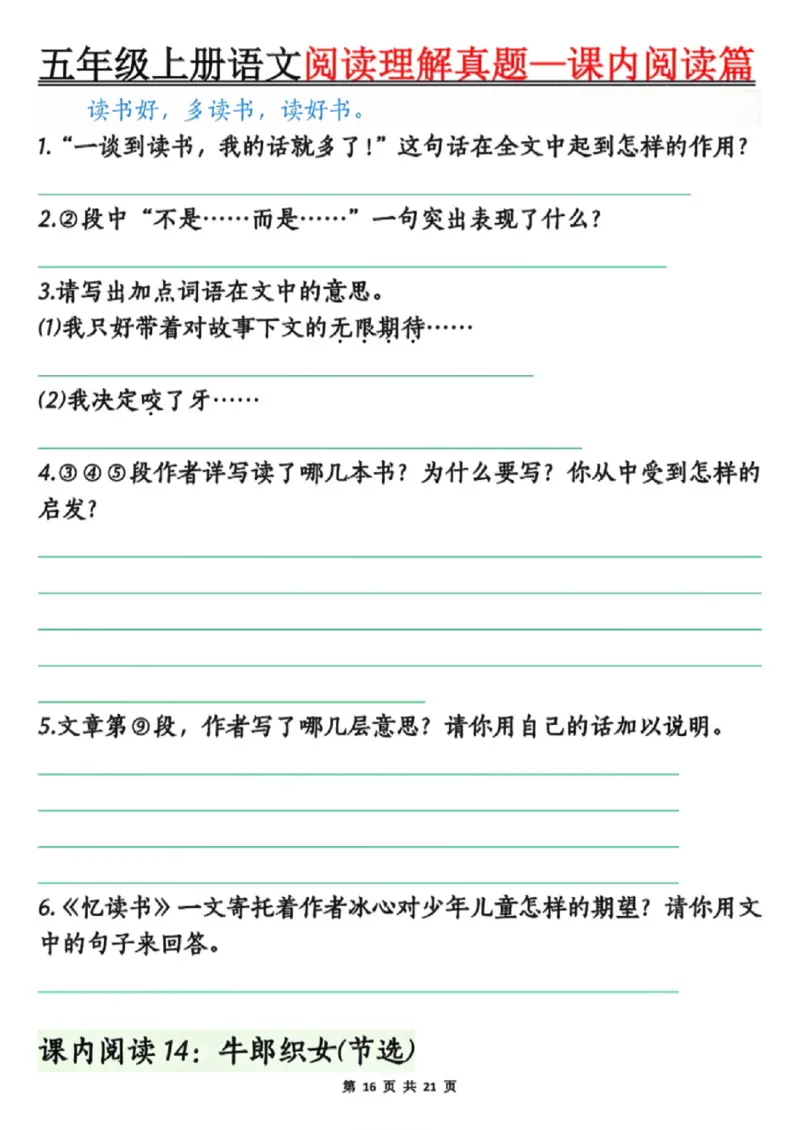 五年级上册语文阅读理解真题—课内阅读篇
读书好，多读书，读好书。
1.“一谈到读书，我的话就多了！”这句话在全文中起到怎样的作用？
2.②段中“不是……而是……”一句突出表现了什么？
3.请写出加点词语在文中的意思。
(1)我只好带着对故事下文的无限期待……
(2)我决定咬了牙……
4.③④⑤段作者详写读了哪几本书？为什么要写？你从中受到怎样的
启发？
5.文章第⑨段，作者写了哪几层意思？请你用自己的话加以说明。
6.《忆读书》一文寄托着作者冰心对少年儿童怎样的期望？请你用文
中的句子来回答。
课内阅读14：牛郎织女(节选)
第 16 页 共 21 页